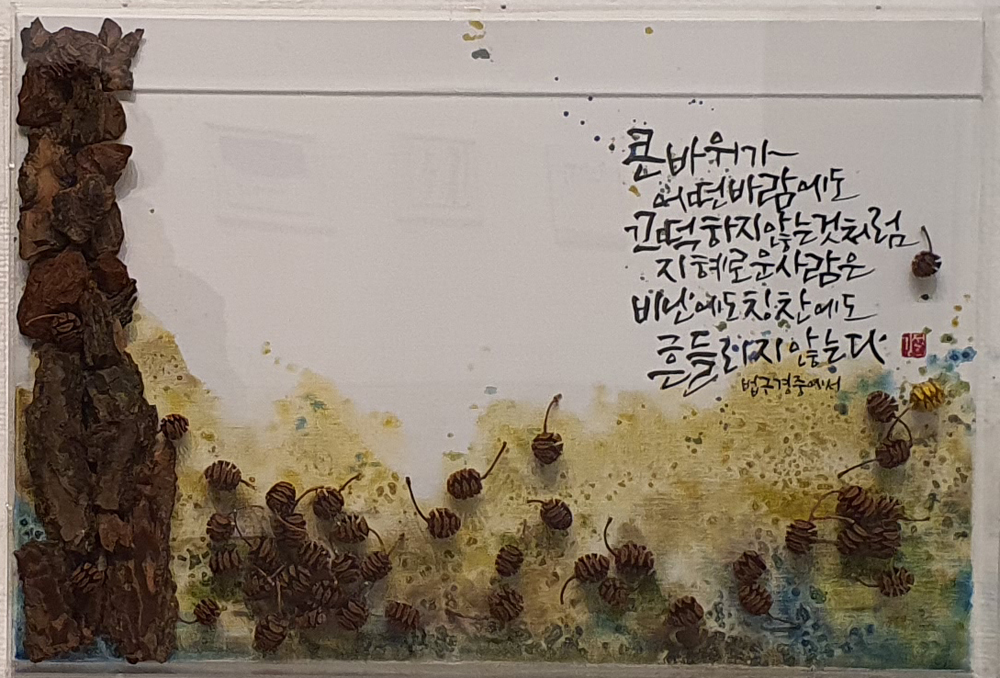 큰 바위가
어떤 바람에도
끄떡하지 않는 것처럼
지혜로운 사람은
비난에도 칭찬에도
흔들리지 않는다
법구경 중에서